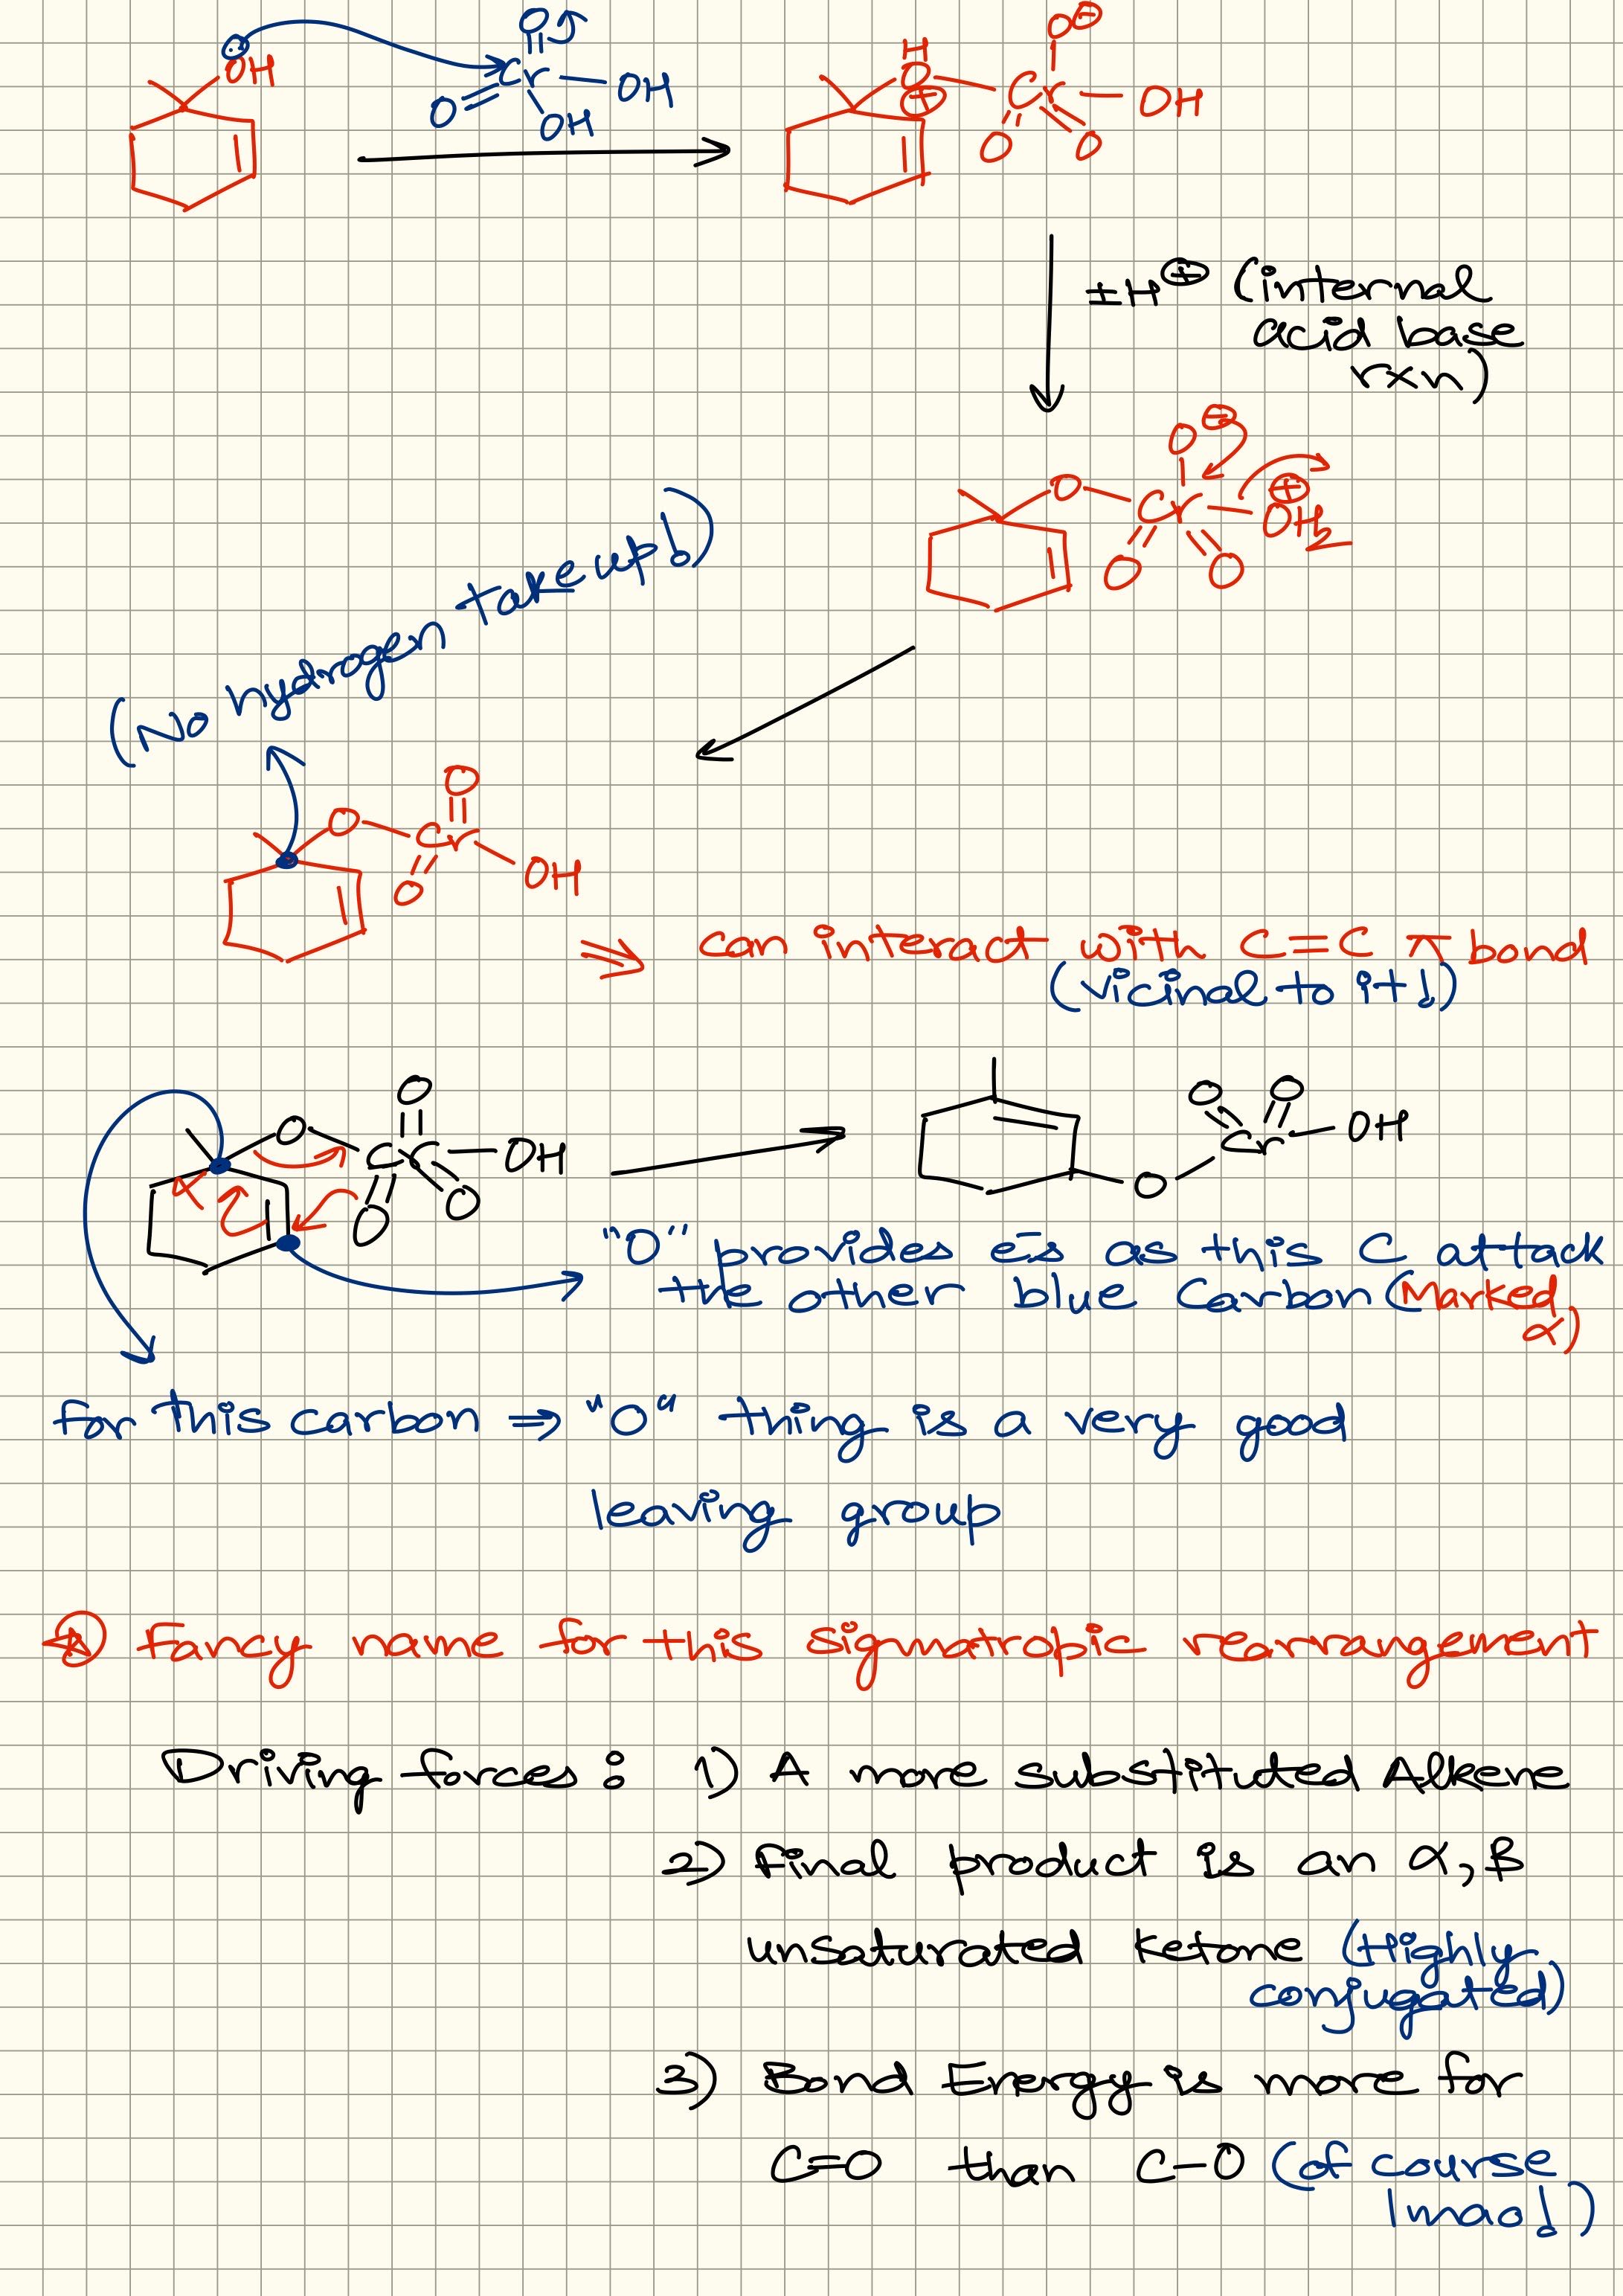 OH
O
Cr
OH
O
OH
H
O
⊕
O⊖
Cr
OH
O
O
±H⊕ (internal
acid base
rxn)
O⊖
O
Cr
⊕
OH2
O
O
(No hydrogen takeup!)
O
O
Cr
O
OH
⇒ can interact with C=C π bond
(vicinal to it!)
O
O
Cr
OH
O
O
α
O
O
Cr
OH
O
"O" provides e-s as this C attack
the other blue Carbon (Marked
α)
for this carbon ⇒ "O" thing is a very good
leaving group
Fancy name for this sigmatropic rearrangement
Driving forces : 1) A more substituted Alkene
2) Final product is an α, β
unsaturated ketone (Highly
conjugated)
3) Bond Energy is more for
C=O than C-O (of course
lmao!)